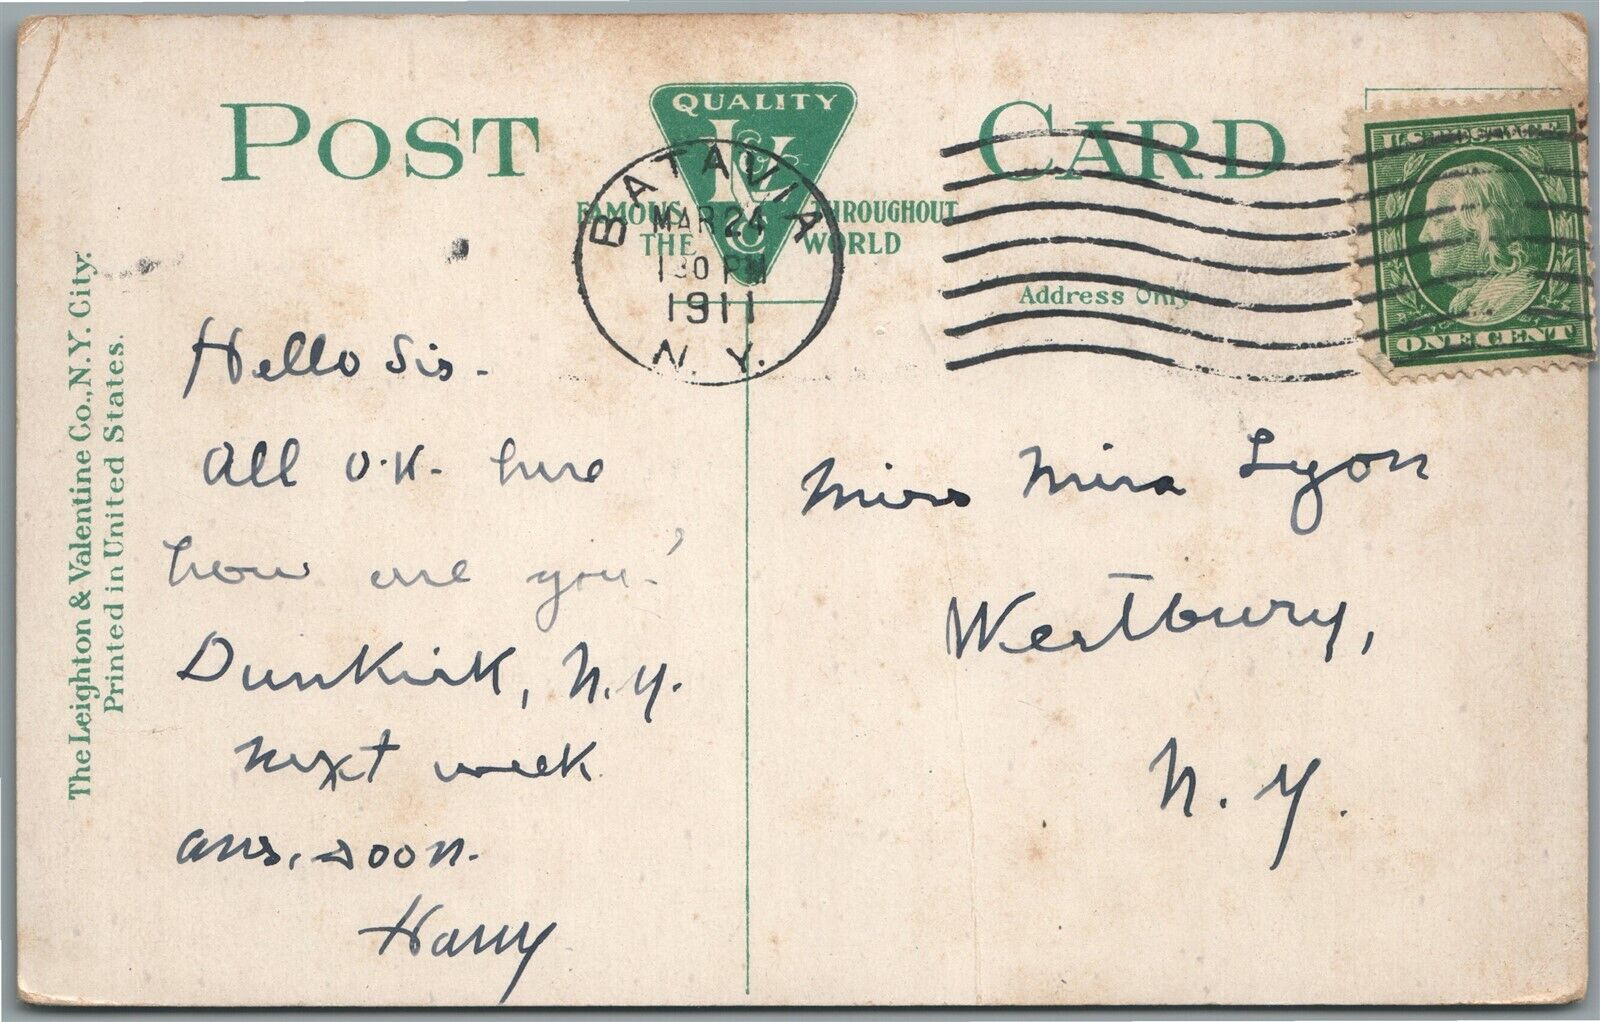 POST CARD
QUALITY
L & V
Co
FAMOUS THROUGHOUT
THE WORLD
BATAVIA
MAR 24
130 PM
1911
N. Y.
Address Only
U.S. POSTAGE
ONE CENT
The Leighton & Valentine Co., N.Y. City.
Printed in United States.
Hello Sis.
All O.K. here
how are you.
Dunkirk, N.Y.
next week
ans. soon.
Harry
Miss Mina Lyon
Westbury,
N. Y.